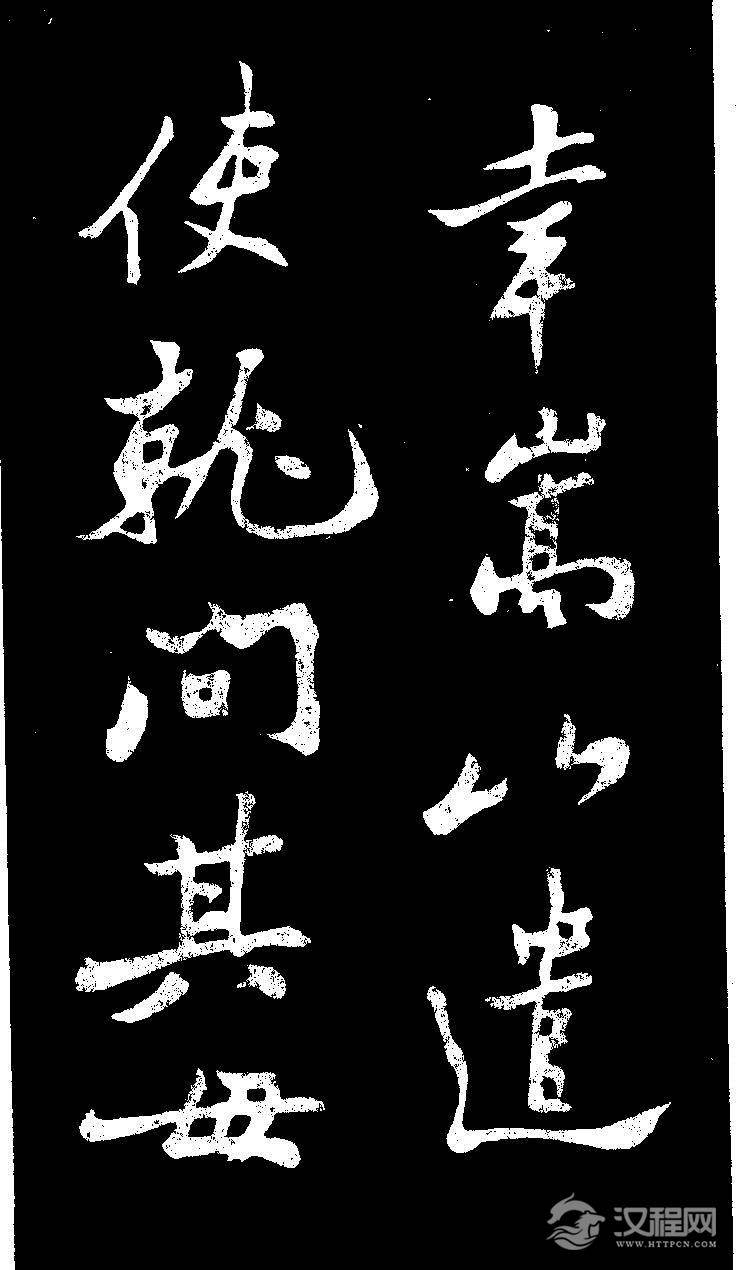 幸嵩山遣
使就问其母
汉程网
WWW.HTTPCN.COM